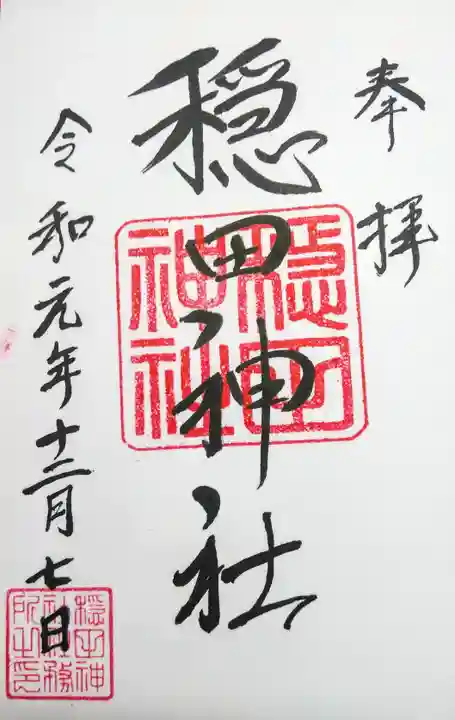 奉拝
穏田神社
穏田神社
令和元年十二月七日
穏田神
社務
所之印